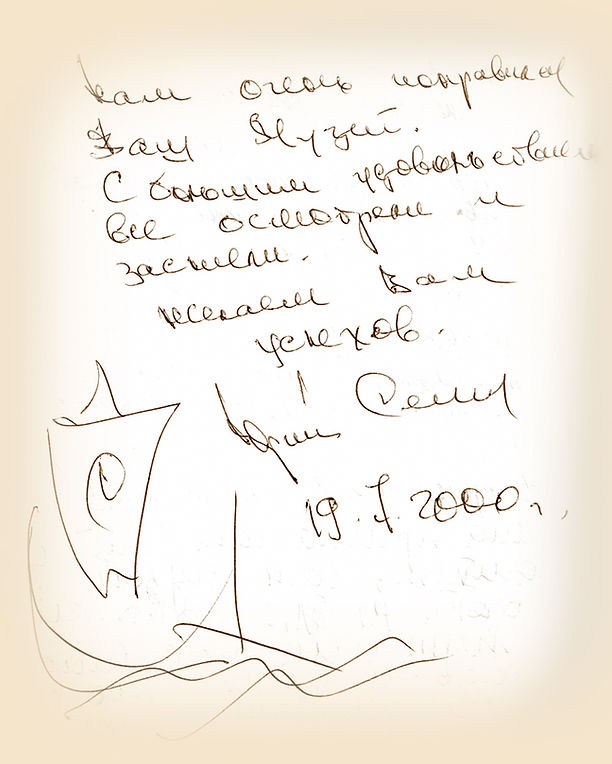 Нам очень понравился
Ваш Музей.
С большим удовольствием
все осмотрели и
засняли.
Желаем Вам
успехов.
Юрий Сенкевич
19.7.2000г.